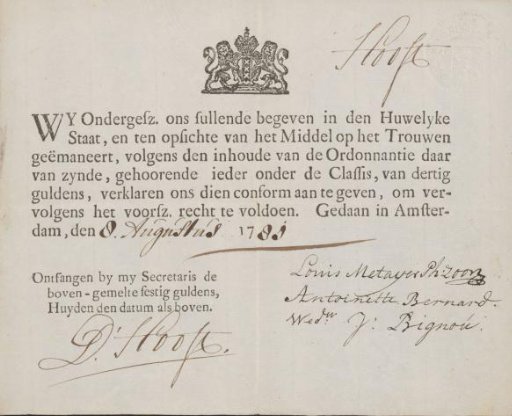 Hooft
WY Ondergesz. ons sullende begeven in den Huwelyke
Staat, en ten opsichte van het Middel op het Trouwen
geëmaneert, volgens den inhoude van de Ordonnantie daar
van zynde, gehoorende ieder onder de Classis, van dertig
guldens, verklaren ons dien conform aan te geven, om ver-
volgens het voorsz. recht te voldoen. Gedaan in Amster-
dam, den 8. Augustus 1785
Ontfangen by my Secretaris de
boven-gemelte sestig guldens,
Huyden den datum als boven.
D. Hooft.
Louis Metayer Phzoon
Antoinette Bernard.
Wedu J: Bignou.